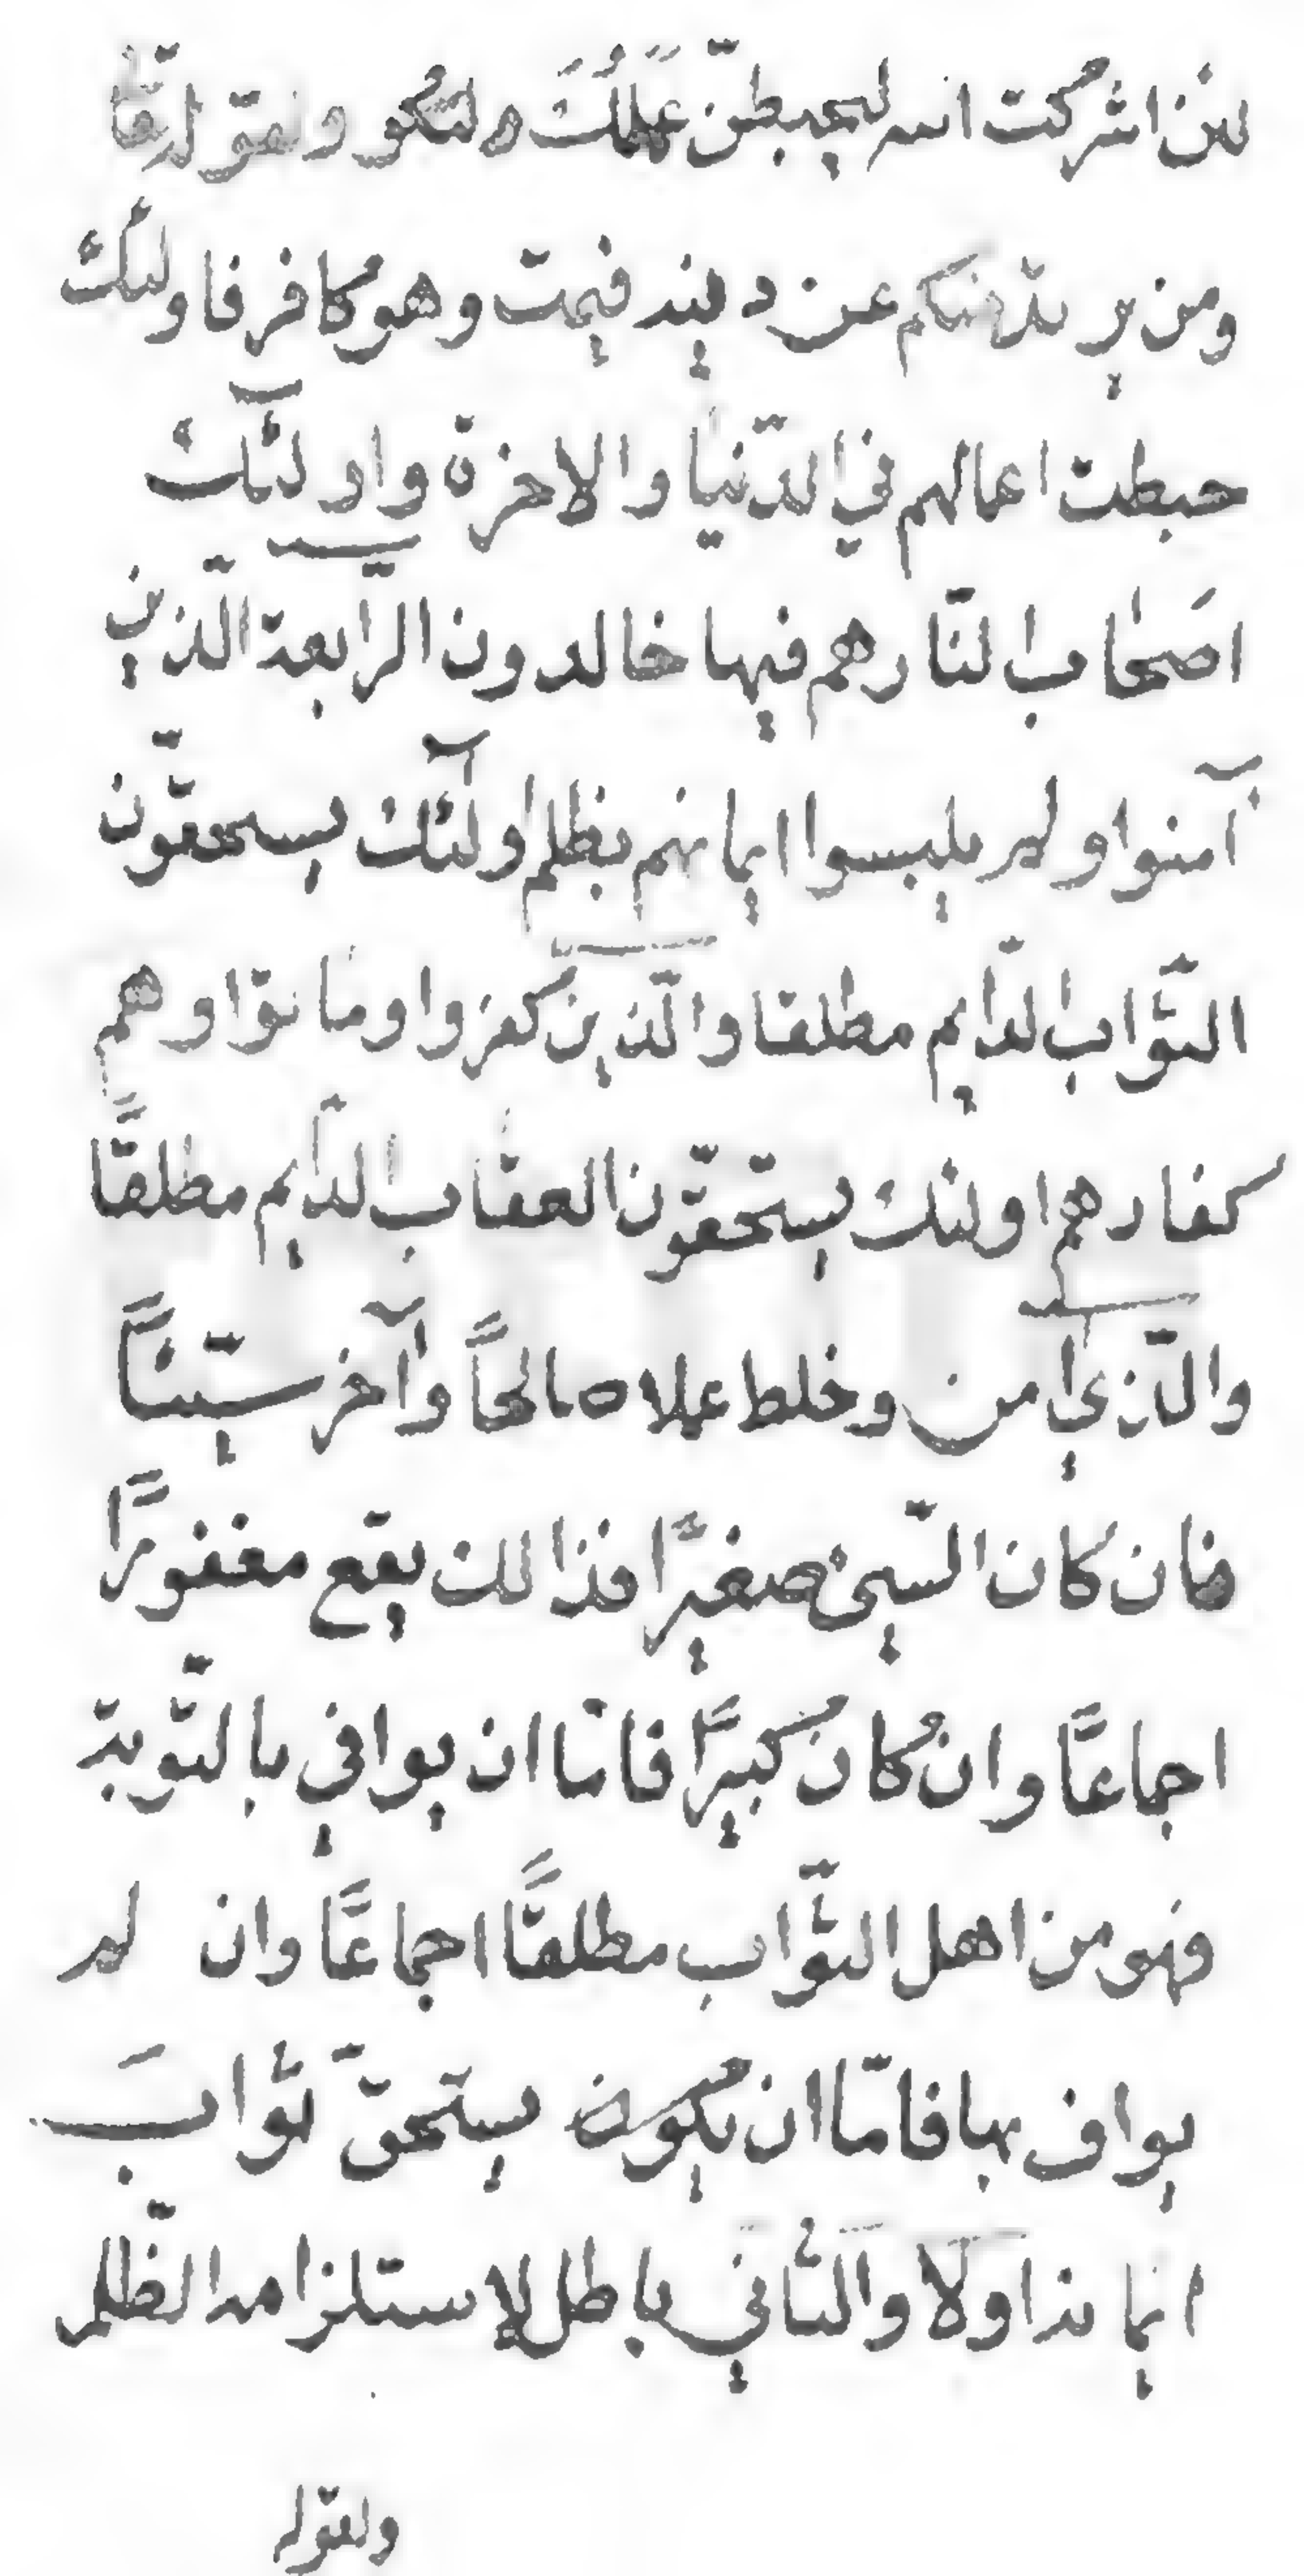 لئن اشركت ليحبطن عملك ولقوله تعا
ومن يرتدد منكم عن دينه فيمت وهو كافر فاولئك
حبطت اعمالهم في الدّنيا والاخرة واولئك
اصَحاب النّار هم فيها خالدون الرّابعة الّذين
آمنوا ولم يلبسوا ايمانهم بظلم اولٓئك يستحقّون
الثّواب الدّايم مطلقا والّذين كفروا وماتوا وهم
كفار هم اولئك يستحقّون العقاب الدّايم مطلقًا
والّذي امن وخلط عملا صالحًا وآخر سيّئًا
فان كان السّيئ صغيرًا فذالك يقع مغفورًا
اجماعًا وان كان كبيرًا فامّا ان يوافي بالتّوبة
فهو من اهل الثّواب مطلقًا اجماعًا وان لم
يواف بها فامّا ان يكون يستحقّ ثواب
ايمانه اولا والثاني باطل لاستلزامه الظّلم
ولقوله